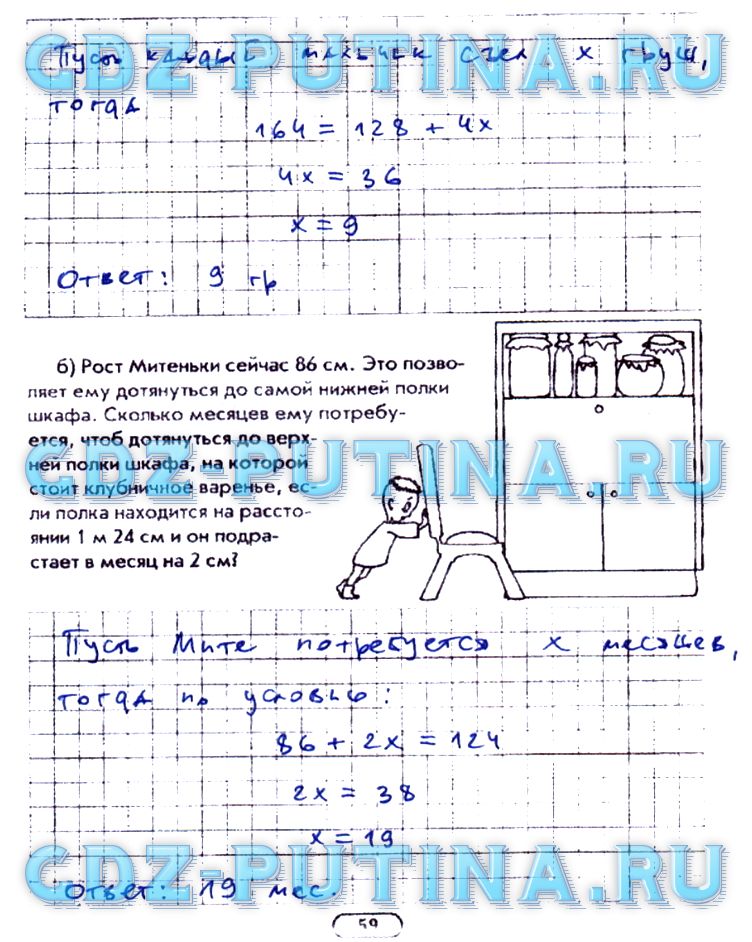 Пусть каждый мальчик съел x груш,
тогда
164 = 128 + 4x
4x = 36
x = 9
Ответ: 9 гр
б) Рост Митеньки сейчас 86 см. Это позво-
ляет ему дотянуться до самой нижней полки
шкафа. Сколько месяцев ему потребу-
ется, чтоб дотянуться до верх-
ней полки шкафа, на которой
стоит клубничное варенье, ес-
ли полка находится на рассто-
янии 1 м 24 см и он подра-
стает в месяц на 2 см?
Пусть Мите потребуется x месяцев,
тогда по условию:
86 + 2x = 124
2x = 38
x = 19
Ответ: 19 мес.
59
GDZ-PUTINA.RU
GDZ-PUTINA.RU
GDZ-PUTINA.RU